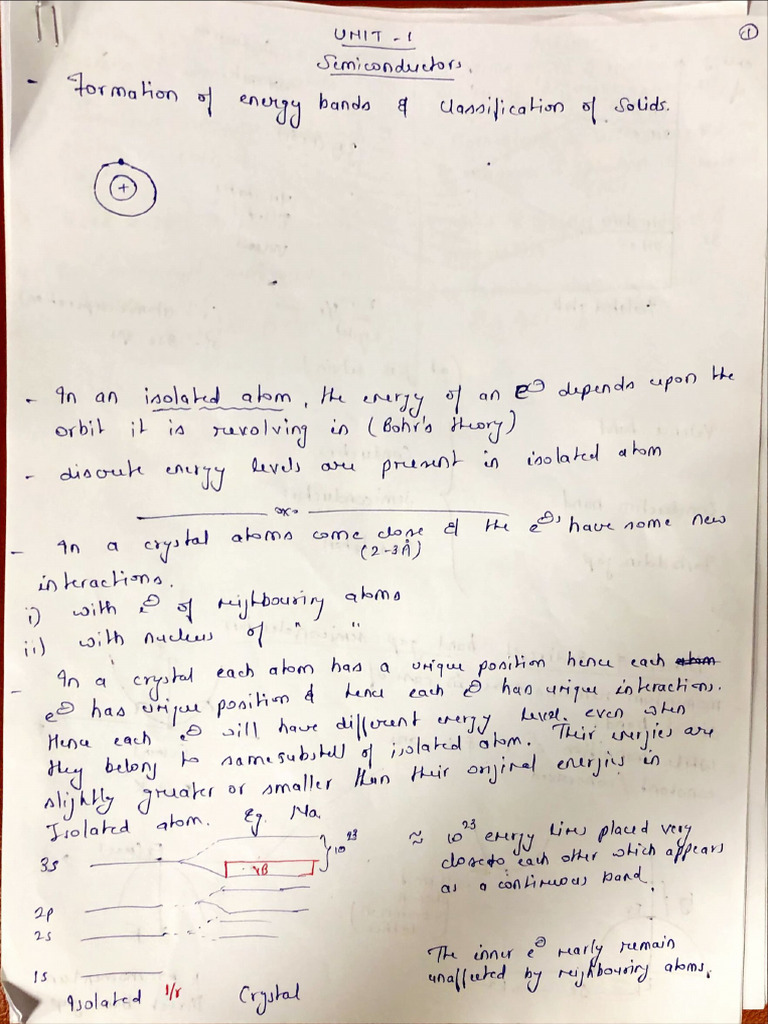 ①
UNIT - 1
Semiconductors.
- Formation of energy bands & Classification of Solids.
+
- In an isolated atom, the energy of an e⊖ depends upon the
orbit it is revolving in (Bohr's theory)
- discrete energy levels are present in isolated atom
- In a crystal atoms come close & the e⊖s have some new
(2-3Å)
interactions.
i) with e⊖ of neighbouring atoms
ii) with nucleus of " "
- In a crystal each atom has a unique position hence each atom
e⊖ has unique position & hence each e⊖ has unique interactions.
Hence each e⊖ will have different energy level. even when
they belong to same subshell of isolated atom. Their energies are
slightly greater or smaller than their original energies in
Isolated atom. Eg. Na.
3s
VB
} 10²³
≈ 10²³ energy lines placed very
close to each other which appears
as a continuous band.
2p
2s
1s
The inner e⊖ nearly remain
unaffected by neighbouring atoms.
Isolated 1/r Crystal